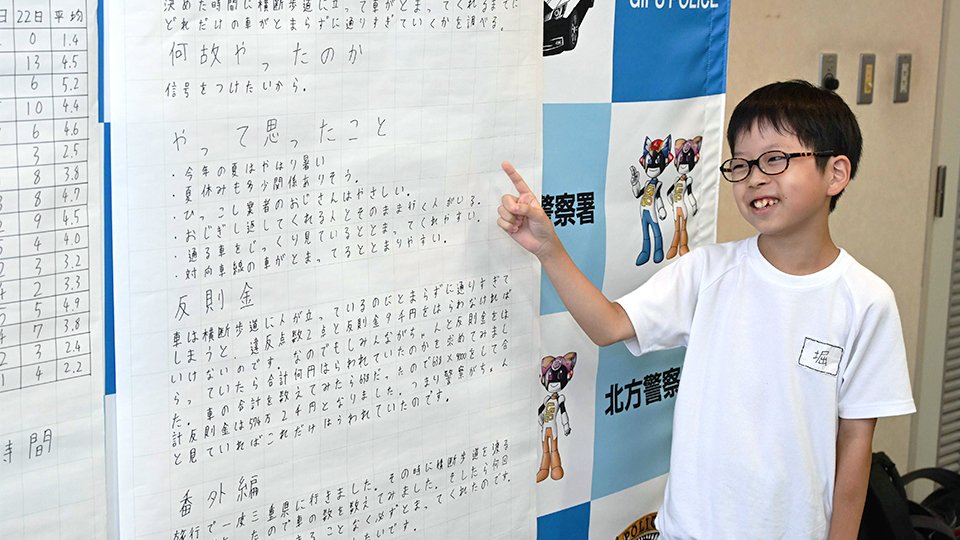 日 22日 平均
0 1.4
13 4.5
6 5.2
10 4.4
6 4.6
3 2.5
8 3.8
8 4.7
9 4.5
4 4.0
3 3.2
2 3.3
5 4.9
7 3.8
3 2.4
4 2.2
時間
決めた時間に横断歩道に立って車がとまってくれるまでに
どれだけの車がとまらずに通りすぎていくかを調べる。
何故やったのか
信号をつけたいから。
やって思ったこと
・今年の夏はやはり暑い
・夏休みも多少関係ありそう。
・ひっこし業者のおじさんはやさしい。
・おじぎし返してくれる人とそのまま行く人がいる。
・通る車をじっくり見ているととまってくれやすい。
・対向車線の車がとまってるとまりやすい。
反則金
車は横断歩道に人が立っているのにとまらずに通りすぎて
しまうと、違反点数2点と反則金9千円をはらわなければ
いけないのです。なのでもしみんながちゃんと反則金をは
らっていたら合計何円はらわれていたのかを求めてみまし
た。車の合計を数えてみたら638だったので638×9000をして合
計反則金は574万2千円となりました。つまり警察がちゃん
と見ていればこれだけはらわれていたのです。
番外編
旅行で一度三重県に行きました。その時に横断歩道を渡る
GIFU POLICE
警察署
北方警察
堀
POLIC